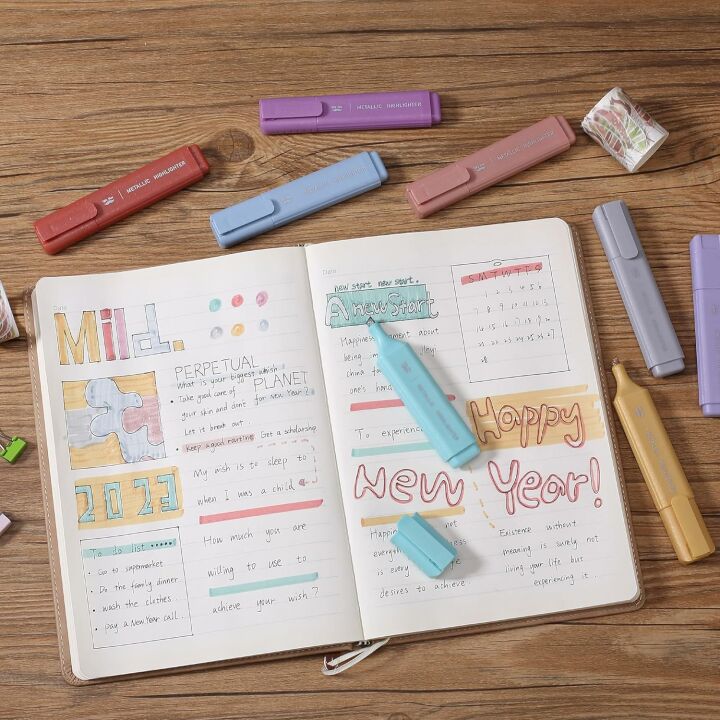 METALLIC HIGHLIGHTER
METALLIC HIGHLIGHTER
METALLIC HIGHLIGHTER
METALLIC HIGHLIGHTER
Date
Mild.
PERPETUAL
What is your biggest which
PLANET
for new Year?
• Take good care of
your skin and don't
Let it break out
• Keep a good routine
Get a scholarship
My wish is to sleep to
when I was a child
2023
How much you are
willing to use to
achieve your wish?
To do list
• Go to supermarket
• Do the family dinner
• wash the clothes.
• pay a New Year call.
Date
new start new start.
A new Start
Happiness about
being
china
one's hand
To experience
S M T W T F S
1 2 3 4 5 6
7 8 9 10 11 12 13
14 15 16 17 18 19 20
Happy
New Year!
not
is every
desires to achieve.
Existence without
meaning is surely not
living your life but
experiencing it.